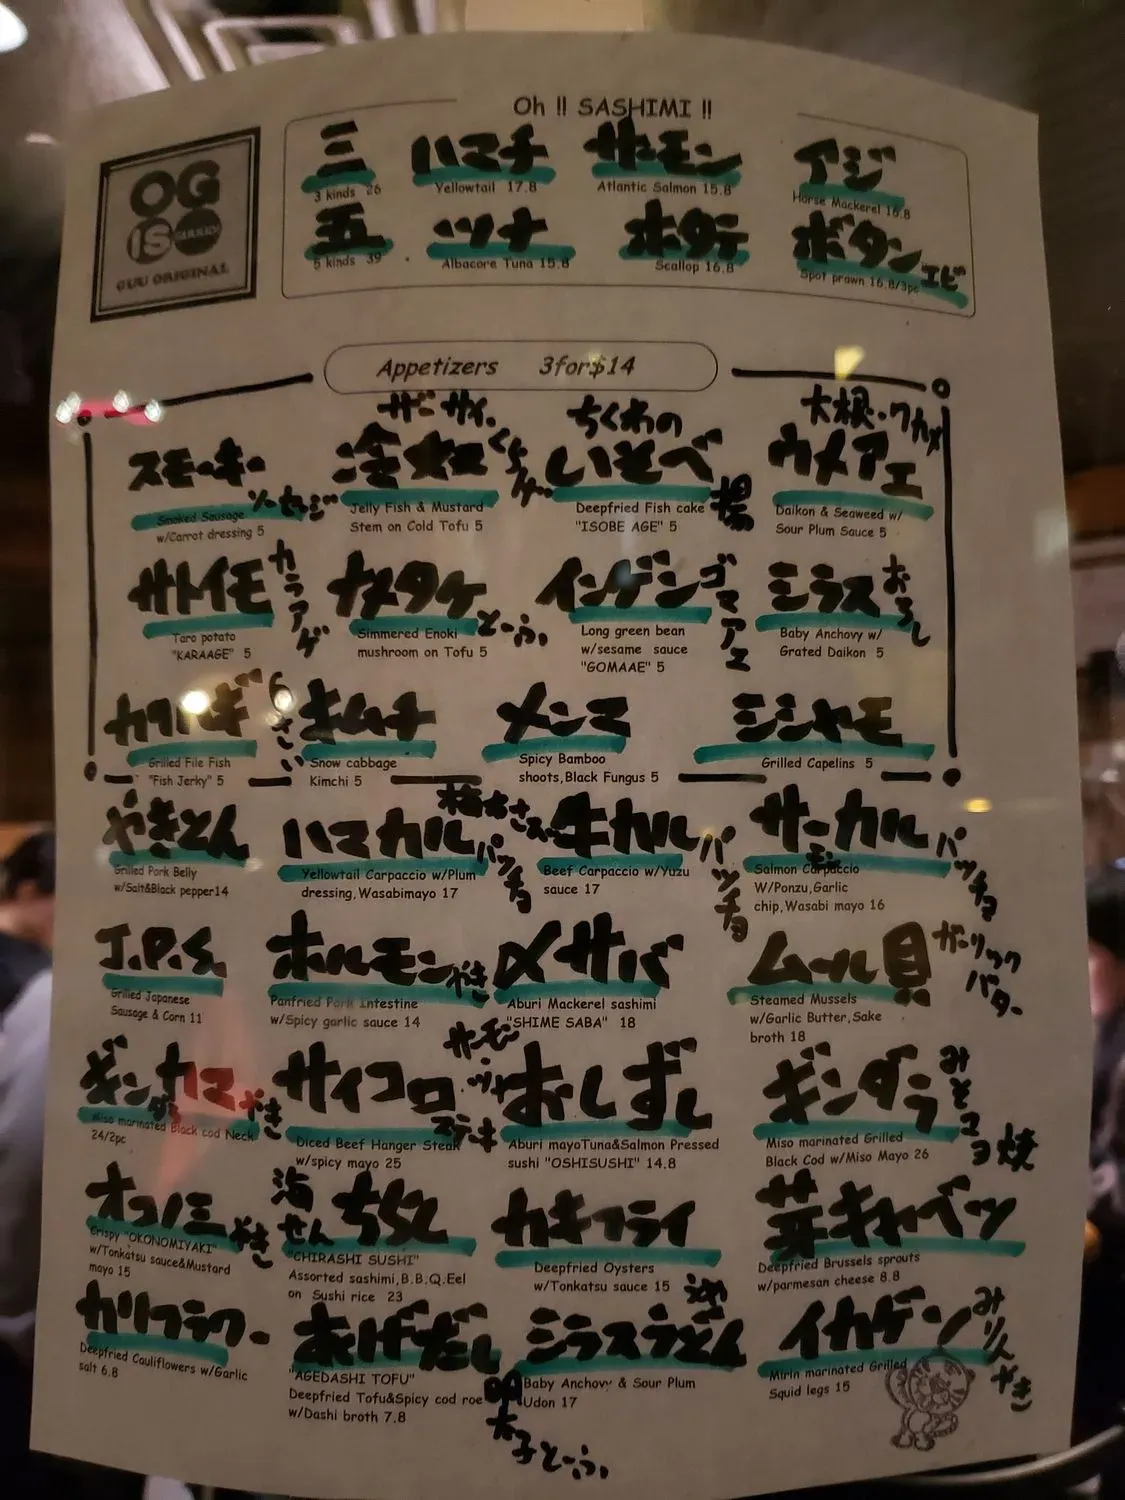 Oh !! SASHIMI !!
OG
IS
GUU ORIGINAL
三 ハマチ サーモン アジ
3 kinds 26 Yellowtail 17.8 Atlantic Salmon 15.8 Horse Mackerel 16.8
五 ツナ ホタテ ボタンエビ
5 kinds 39 Albacore Tuna 15.8 Scallop 16.8 Spot prawn 16.8/3pc
Appetizers 3for$14
スモーキーソーセージ
Smoked Sausage
w/Carrot dressing 5
ザーサイ
冷奴 くらげ
Jelly Fish & Mustard
Stem on Cold Tofu 5
ちくわの
いそべ揚
Deepfried Fish cake
"ISOBE AGE" 5
大根・ワカメ
ウメアエ
Daikon & Seaweed w/
Sour Plum Sauce 5
サトイモ カラアゲ
Taro potato
"KARAAGE" 5
ナメタケとーふ
Simmered Enoki
mushroom on Tofu 5
インゲンゴマアエ
Long green bean
w/sesame sauce
"GOMAAE" 5
シラスおろし
Baby Anchovy w/
Grated Daikon 5
カワハギ
Grilled File Fish
"Fish Jerky" 5
はくさい
キムチ
Snow cabbage
Kimchi 5
メンマ
Spicy Bamboo
shoots,Black Fungus 5
シシャモ
Grilled Capelins 5
やきとん
Grilled Pork Belly
w/Salt&Black pepper14
ハマカルパッチョ
Yellowtail Carpaccio w/Plum
dressing,Wasabimayo 17
牛カルパッチョ
Beef Carpaccio w/Yuzu
sauce 17
サーモンカルパッチョ
Salmon Carpaccio
W/Ponzu,Garlic
chip,Wasabi mayo 16
J.P.S.
Grilled Japanese
Sausage & Corn 11
ホルモンやき
Panfried Pork intestine
w/Spicy garlic sauce 14
〆サバ
Aburi Mackerel sashimi
"SHIME SABA" 18
ムール貝 ガーリックバター
Steamed Mussels
w/Garlic Butter,Sake
broth 18
ギンダラカマやき
Miso marinated Black cod Neck
24/2pc
サイコロステーキ
Diced Beef Hanger Steak
w/spicy mayo 25
サーモン ツナ
おしずし
Aburi mayoTuna&Salmon Pressed
sushi "OSHISUSHI" 14.8
ギンダラみそマヨ焼
Miso marinated Grilled
Black Cod w/Miso Mayo 26
オコノミやき
Crispy "OKONOMIYAKI"
w/Tonkatsu sauce&Mustard
mayo 15
海せんちらし
"CHIRASHI SUSHI"
Assorted sashimi,B.B.Q.Eel
on Sushi rice 23
カキフライ
Deepfried Oysters
w/Tonkatsu sauce 15
芽キャベツ
Deepfried Brussels sprouts
w/parmesan cheese 8.8
カリフラワー
Deepfried Cauliflowers w/Garlic
salt 6.8
あげだし明太子とーふ
"AGEDASHI TOFU"
Deepfried Tofu&Spicy cod roe
w/Dashi broth 7.8
シラスうめうどん
Baby Anchovy & Sour Plum
Udon 17
イカゲソみりんやき
Mirin marinated Grilled
Squid legs 15